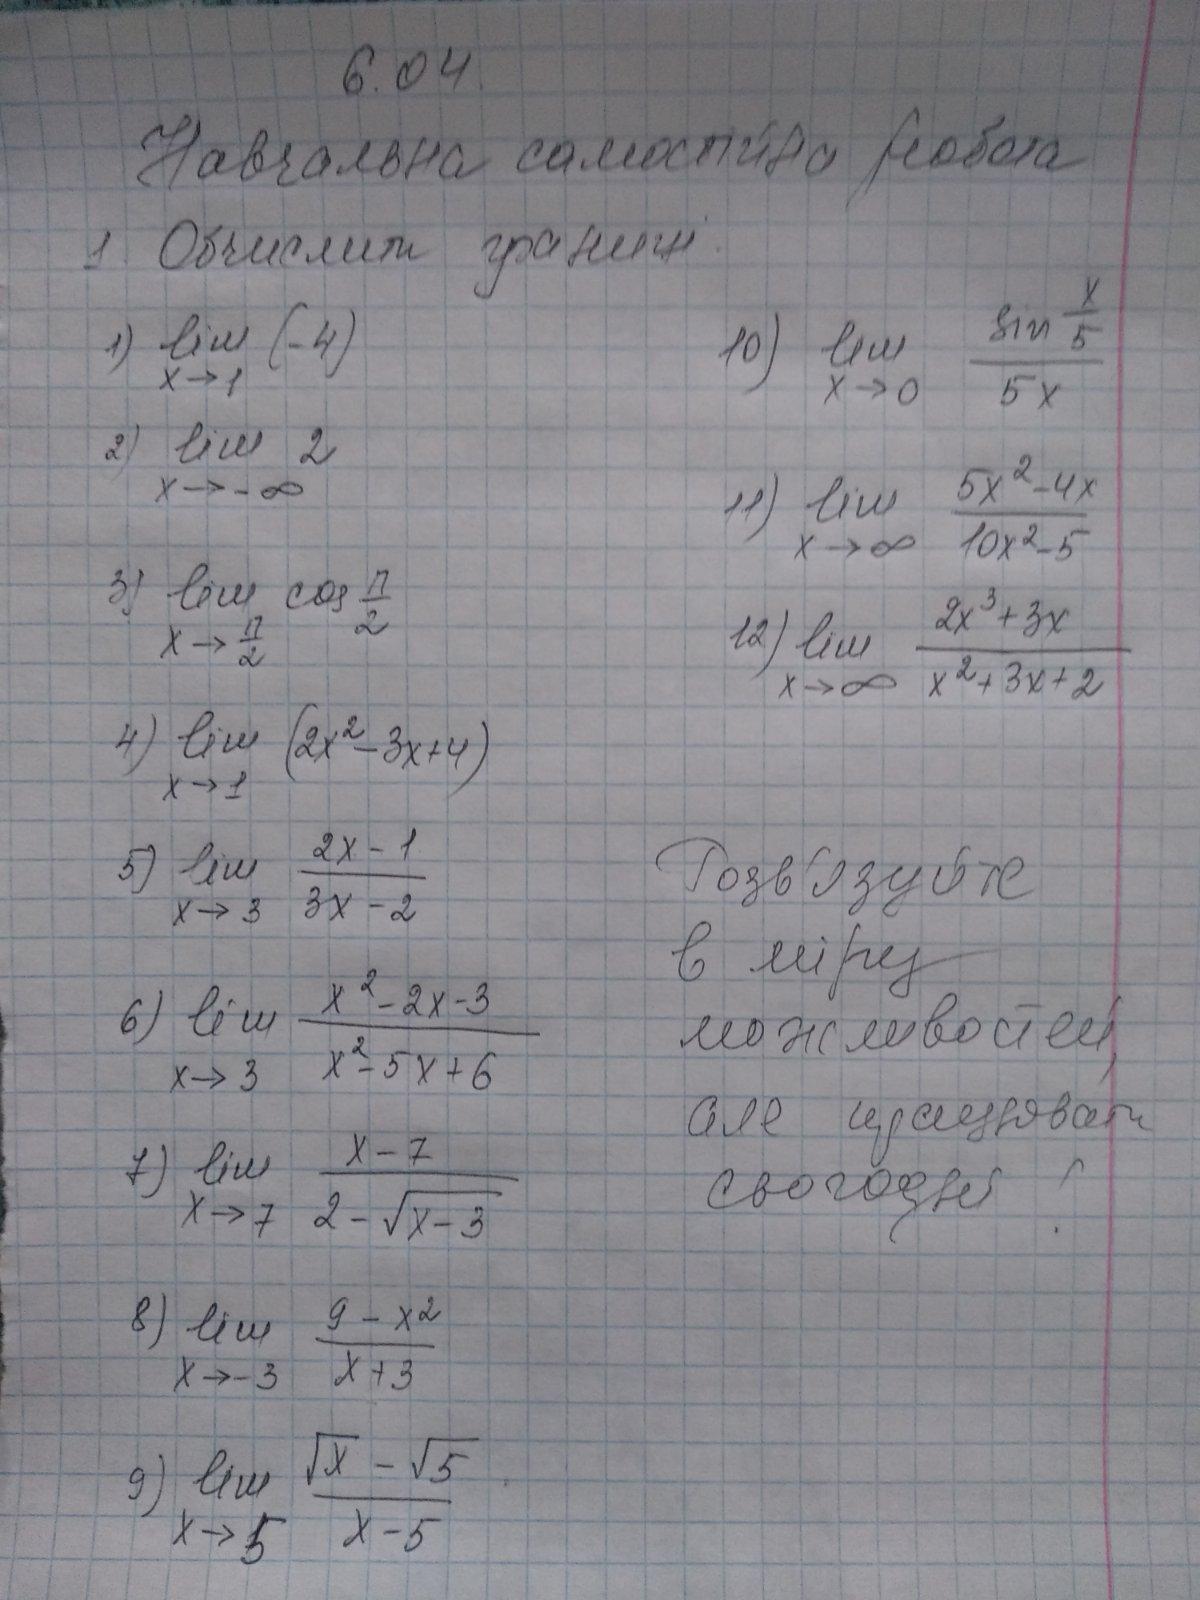 6.04.
Навчальна самостійна робота
1. Обчислити границі.
1) lim (-4)
x→1
2) lim 2
x→-∞
3) lim cos π/2
x→π/2
4) lim (2x²-3x+4)
x→1
5) lim (2x-1)/(3x-2)
x→3
6) lim (x²-2x-3)/(x²-5x+6)
x→3
7) lim (x-7)/(2-√(x-3))
x→7
8) lim (9-x²)/(x+3)
x→-3
9) lim (√x-√5)/(x-5)
x→5
10) lim (sin x/5)/(5x)
x→0
11) lim (5x²-4x)/(10x²-5)
x→∞
12) lim (2x³+3x)/(x²+3x+2)
x→∞
Розв'язуйте
в міру
можливостей,
але працювати
сьогодні!